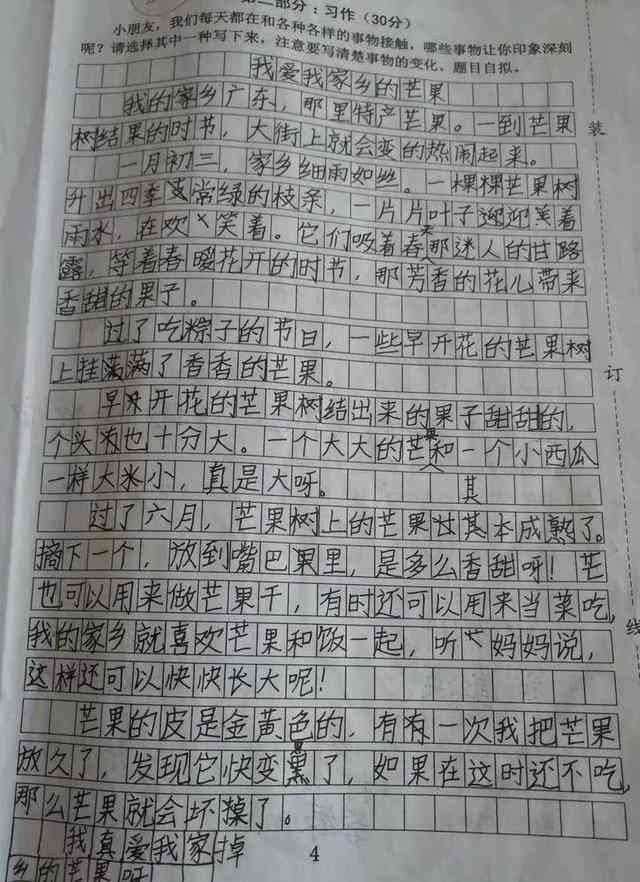 第二部分：习作（30分）
小朋友，我们每天都在和各种各样的事物接触，哪些事物让你印象深刻
呢？请选择其中一种写下来，注意要写清楚事物的变化、题目自拟。
我爱我家乡的芒果
我的家乡广东，那里特产芒果。一到芒果
树结果的时节，大街上就会变的热闹起来。
一月初三，家乡细雨如丝。一棵棵芒果树
升出四季常绿的枝条，一片片叶子迎迎着
雨水，在欢笑着。它们吸着春天那迷人的甘路
露，等着春暖花开的时节，那芳香的花儿带来
香甜的果子。
过了吃粽子的节日，一些早开花的芒果树
上挂满满了香香的芒果。
早开花的芒果树结出来的果子甜甜的，
个头也十分大。一个大大的芒果和一个小西瓜
一样大米小，真是大呀。
其
过了六月，芒果树上的芒果其本成熟了。
摘下一个，放到嘴巴里，是多么香甜呀！芒
也可以用来做芒果干，有时还可以用来当菜吃，
我的家乡就喜欢芒果和饭一起，听妈妈说，
这样还可以快快长大呢！
芒果的皮是金黄色的，有有一次我把芒果
放久了，发现它快变黑了，如果在这时还不吃，
那么芒果就会坏掉了。
我真爱我家掉
乡的芒果呀
4
装
订
线